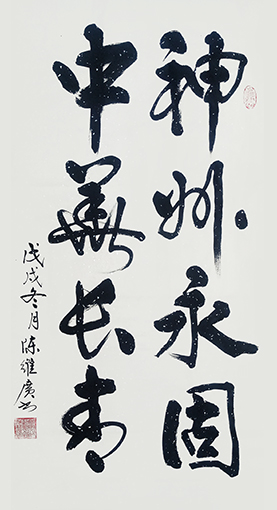 神州永固
中華长青
戊戌冬月陈维廣书